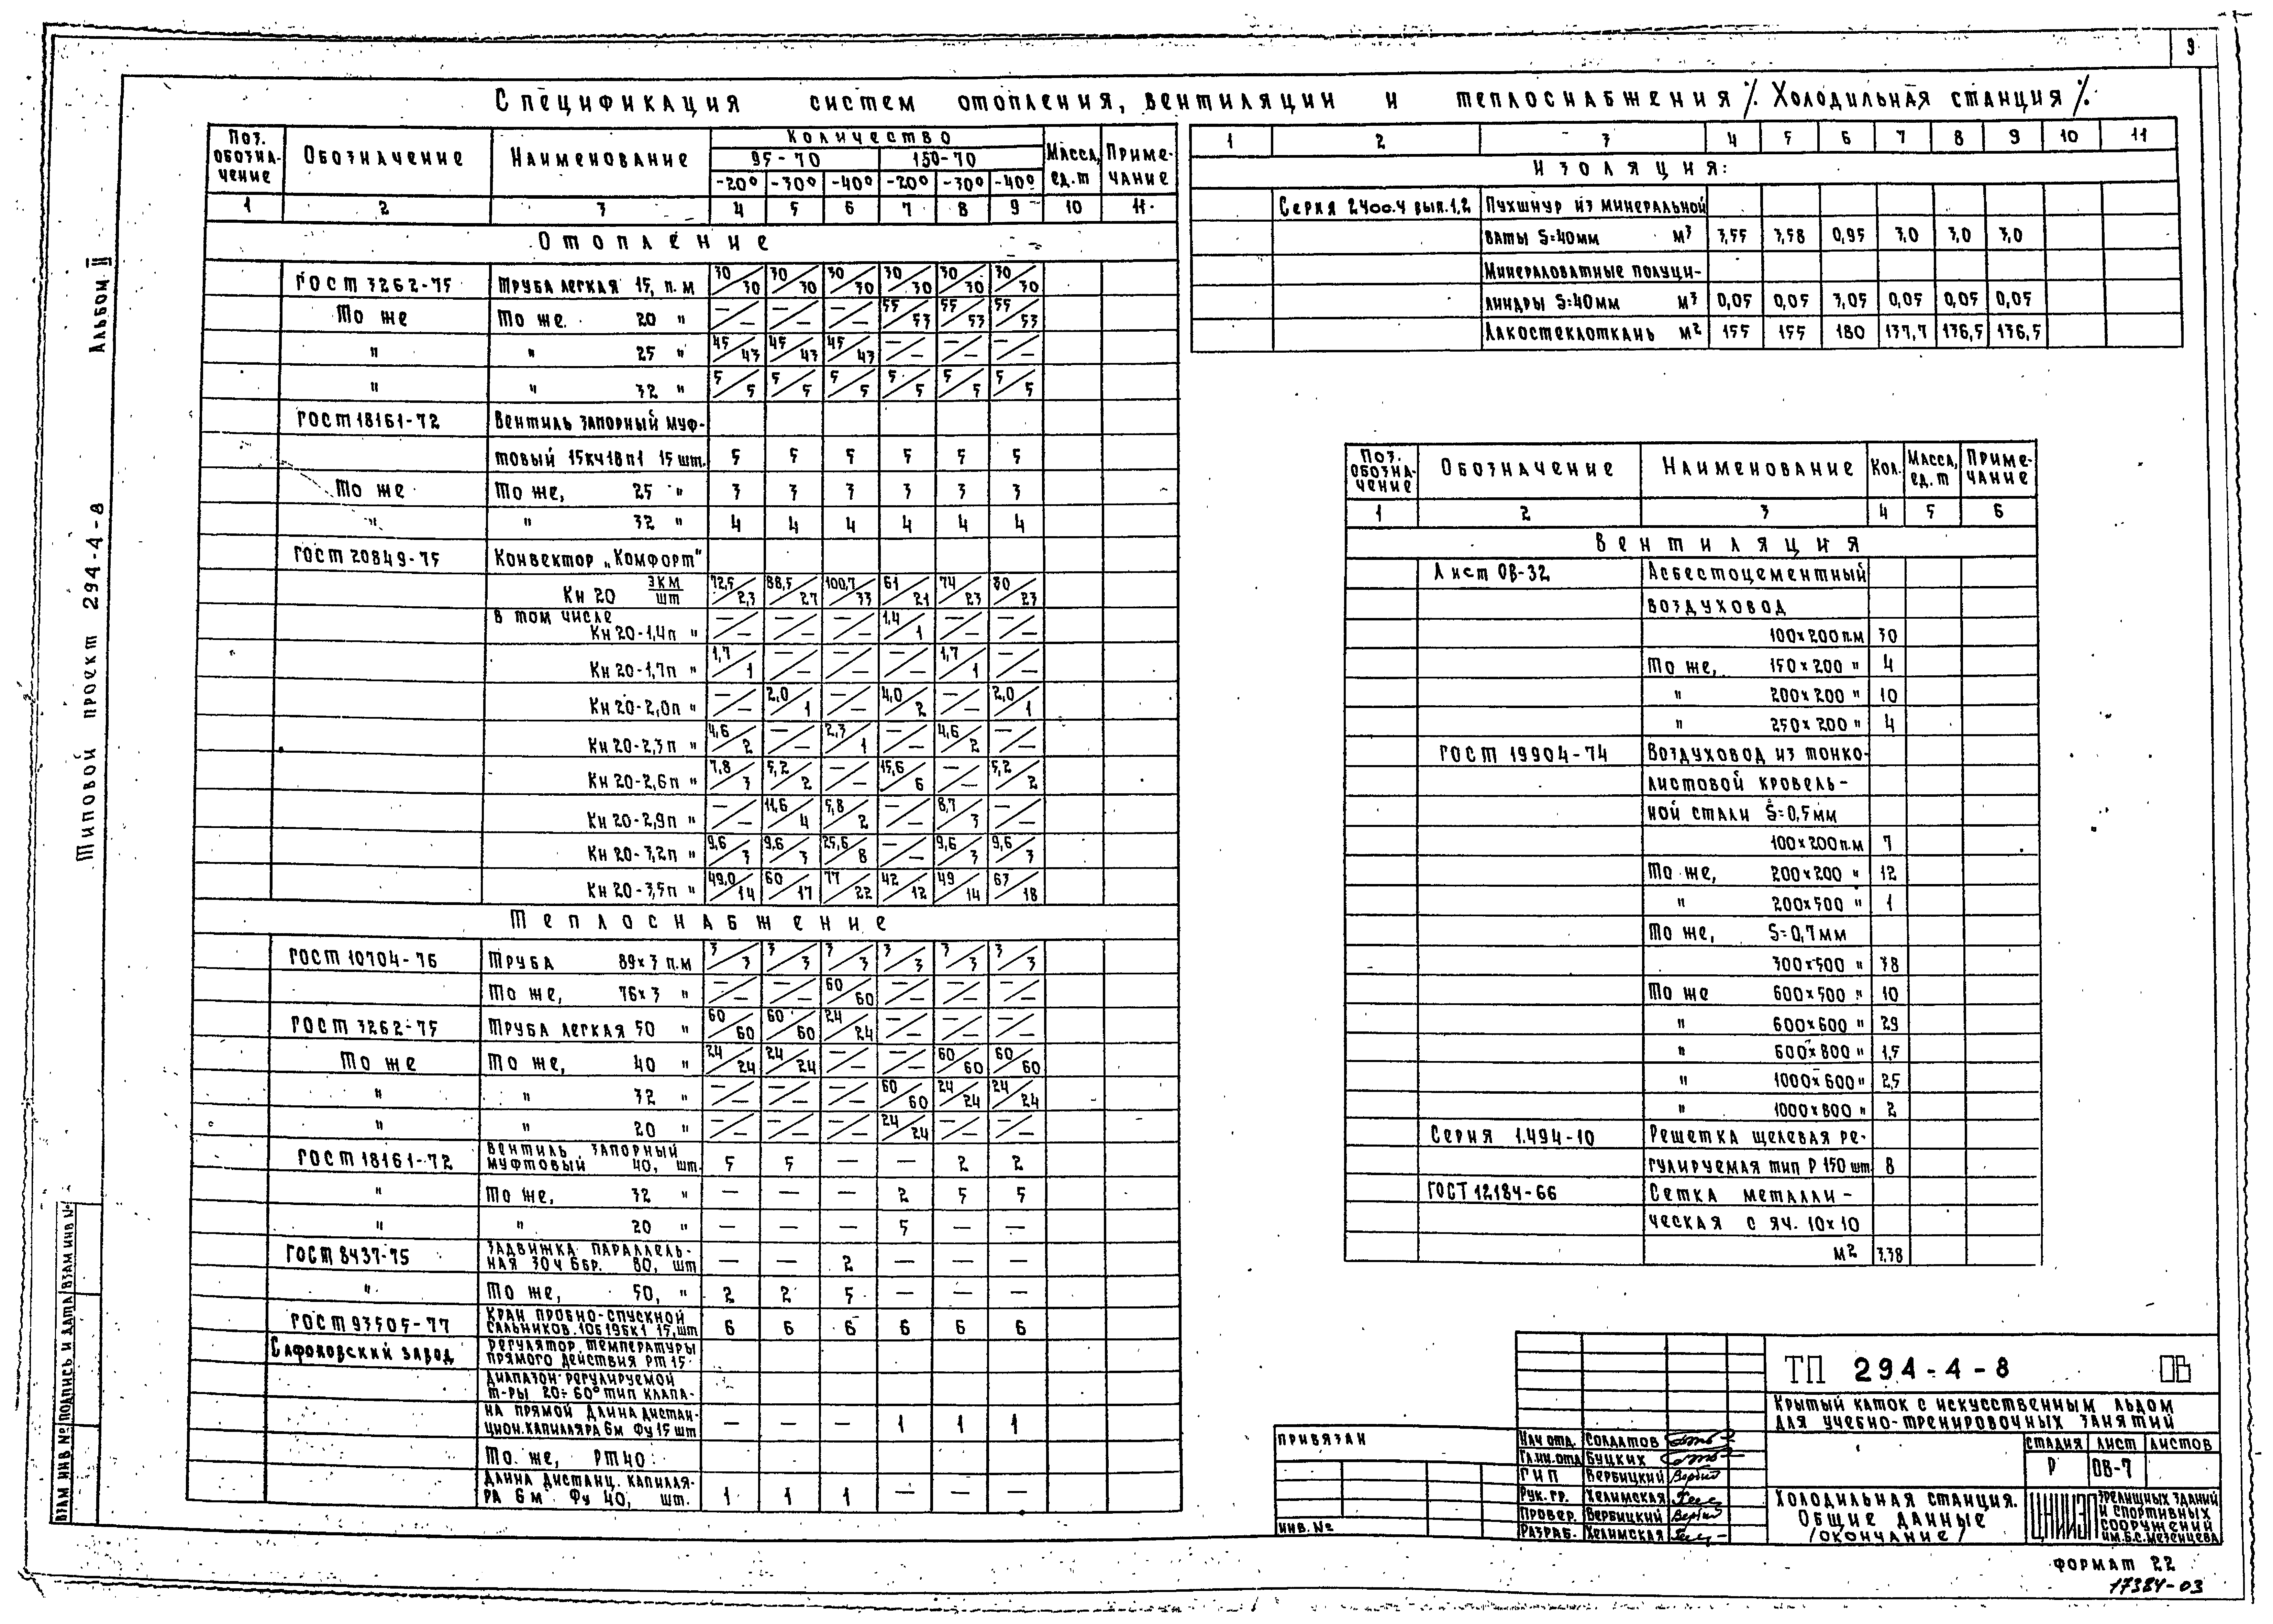 9
Спецификация систем отопления, вентиляции и теплоснабжения /. Холодильная станция /.
Альбом II
Типовой проект 294-4-8
Поз. обозначение | Обозначение | Наименование | Количество | Масса, ед. т | Примечание
95-70 | 150-70
-20° | -30° | -40° | -20° | -30° | -40°
1 | 2 | 3 | 4 | 5 | 6 | 7 | 8 | 9 | 10 | 11
Отопление
ГОСТ 3262-75 | Труба легкая 15, п.м | 30/30 | 30/30 | 30/30 | 30/30 | 30/30 | 30/30
То же | То же. 20 " | —/— | —/— | —/— | 55/53 | 55/53 | 55/53
" | " 25 " | 45/43 | 45/43 | 45/43 | —/— | —/— | —/—
" | " 32 " | 5/5 | 5/5 | 5/5 | 5/5 | 5/5 | 5/5
ГОСТ 18161-72 | Вентиль запорный муф-
товый 15кч18п1 15 шт. | 5 | 5 | 5 | 5 | 5 | 5
То же | То же, 25 " | 3 | 3 | 3 | 3 | 3 | 3
" | " 32 " | 4 | 4 | 4 | 4 | 4 | 4
ГОСТ 20849-75 | Конвектор „Комфорт"
Кн 20 экм/шт | 72,5/23 | 88,5/27 | 100,7/33 | 61/21 | 74/23 | 80/23
в том числе
Кн 20-1,4п " | —/— | —/— | —/— | 1,4/1 | —/— | —/—
Кн 20-1,7п " | 1,7/1 | —/— | —/— | —/— | 1,7/1 | —/—
Кн 20-2,0п " | —/— | 2,0/1 | —/— | 4,0/2 | —/— | 2,0/1
Кн 20-2,3п " | 4,6/2 | —/— | 2,3/1 | —/— | 4,6/2 | —/—
Кн 20-2,6п " | 7,8/3 | 5,2/2 | —/— | 15,6/6 | —/— | 5,2/2
Кн 20-2,9п " | —/— | 11,6/4 | 5,8/2 | —/— | 8,7/3 | —/—
Кн 20-3,2п " | 9,6/3 | 9,6/3 | 25,6/8 | —/— | 9,6/3 | 9,6/3
Кн 20-3,5п " | 49,0/14 | 60/17 | 77/22 | 42/12 | 49/14 | 63/18
Теплоснабжение
ГОСТ 10704-76 | Труба 89х3 п.м | 3/3 | 3/3 | 3/3 | 3/3 | 3/3 | 3/3
То же, 76х3 " | —/— | —/— | 60/60 | —/— | —/— | —/—
ГОСТ 3262-75 | Труба легкая 50 " | 60/60 | 60/60 | 24/24 | —/— | —/— | —/—
То же | То же, 40 " | 24/24 | 24/24 | —/— | —/— | 60/60 | 60/60
" | " 32 " | —/— | —/— | —/— | 60/60 | 24/24 | 24/24
" | " 20 " | —/— | —/— | —/— | 24/24 | —/— | —/—
ГОСТ 18161-72 | Вентиль запорный
муфтовый 40, шт. | 5 | 5 | — | — | 2 | 2
" | То же, 32 " | — | — | — | 2 | 5 | 5
" | " 20 " | — | — | — | 5 | — | —
ГОСТ 8437-75 | Задвижка параллель-
ная 30ч6бр. 80, шт | — | — | 2 | — | — | —
" | То же, 50, " | 2 | 2 | 5 | — | — | —
ГОСТ 93505-77 | Кран пробно-спускной
сальников. 10Б19бк1 15, шт | 6 | 6 | 6 | 6 | 6 | 6
Сафоновский завод | Регулятор температуры
прямого действия РТ15
Диапазон регулируемой
т-ры 20÷60° тип клапа-
на прямой длина дистан-
цион. капилляра 6м Фу 15 шт | — | — | — | 1 | 1 | 1
То же, РТ40
Длина дистанц. капилля-
ра 6м Фу 40, шт. | 1 | 1 | 1 | — | — | —
1 | 2 | 3 | 4 | 5 | 6 | 7 | 8 | 9 | 10 | 11
Изоляция:
Серия 2400.4 вып.1,2 | Пухшнур из минеральной
ваты S=40мм м3 | 3,55 | 3,58 | 0,95 | 3,0 | 3,0 | 3,0
Минераловатные полуци-
линдры S=40мм м3 | 0,05 | 0,05 | 3,05 | 0,05 | 0,05 | 0,05
Лакостеклоткань м2 | 155 | 155 | 180 | 137,7 | 136,5 | 136,5
Поз. обозначение | Обозначение | Наименование | Кол. | Масса, ед. т | Примечание
1 | 2 | 3 | 4 | 5 | 6
Вентиляция
Лист ОВ-32 | Асбестоцементный
воздуховод
100х200 п.м | 30
То же, 150х200 " | 4
" 200х200 " | 10
" 250х200 " | 4
ГОСТ 19904-74 | Воздуховод из тонко-
листовой кровель-
ной стали S=0,5мм
100х200 п.м | 7
То же, 200х200 " | 12
" 200х500 " | 1
То же, S=0,7мм
300х500 " | 38
То же 600х500 " | 10
" 600х600 " | 29
" 600х800 " | 1,5
" 1000х600 " | 2,5
" 1000х800 " | 2
Серия 1.494-10 | Решетка щелевая ре-
гулируемая тип Р 150 шт | 8
ГОСТ 12184-66 | Сетка металли-
ческая с яч. 10х10
м2 | 3,38
ТП 294-4-8 ОВ
Крытый каток с искусственным льдом
для учебно-тренировочных занятий
Стадия | Лист | Листов
Р | ОВ-7
Холодильная станция.
Общие данные
/окончание/
ЦНИИЭП зрелищных зданий
и спортивных
сооружений
им. Б.С. Мезенцева
Привязан
Инв. №
Нач отд. Солдатов
Гл.ин.отд Буцких
ГИП Вербицкий
Рук. гр. Хелимская
Провер. Вербицкий
Разраб. Хелимская
Взам инв № Подпись и дата Взам инв №
Формат 22
17384-03